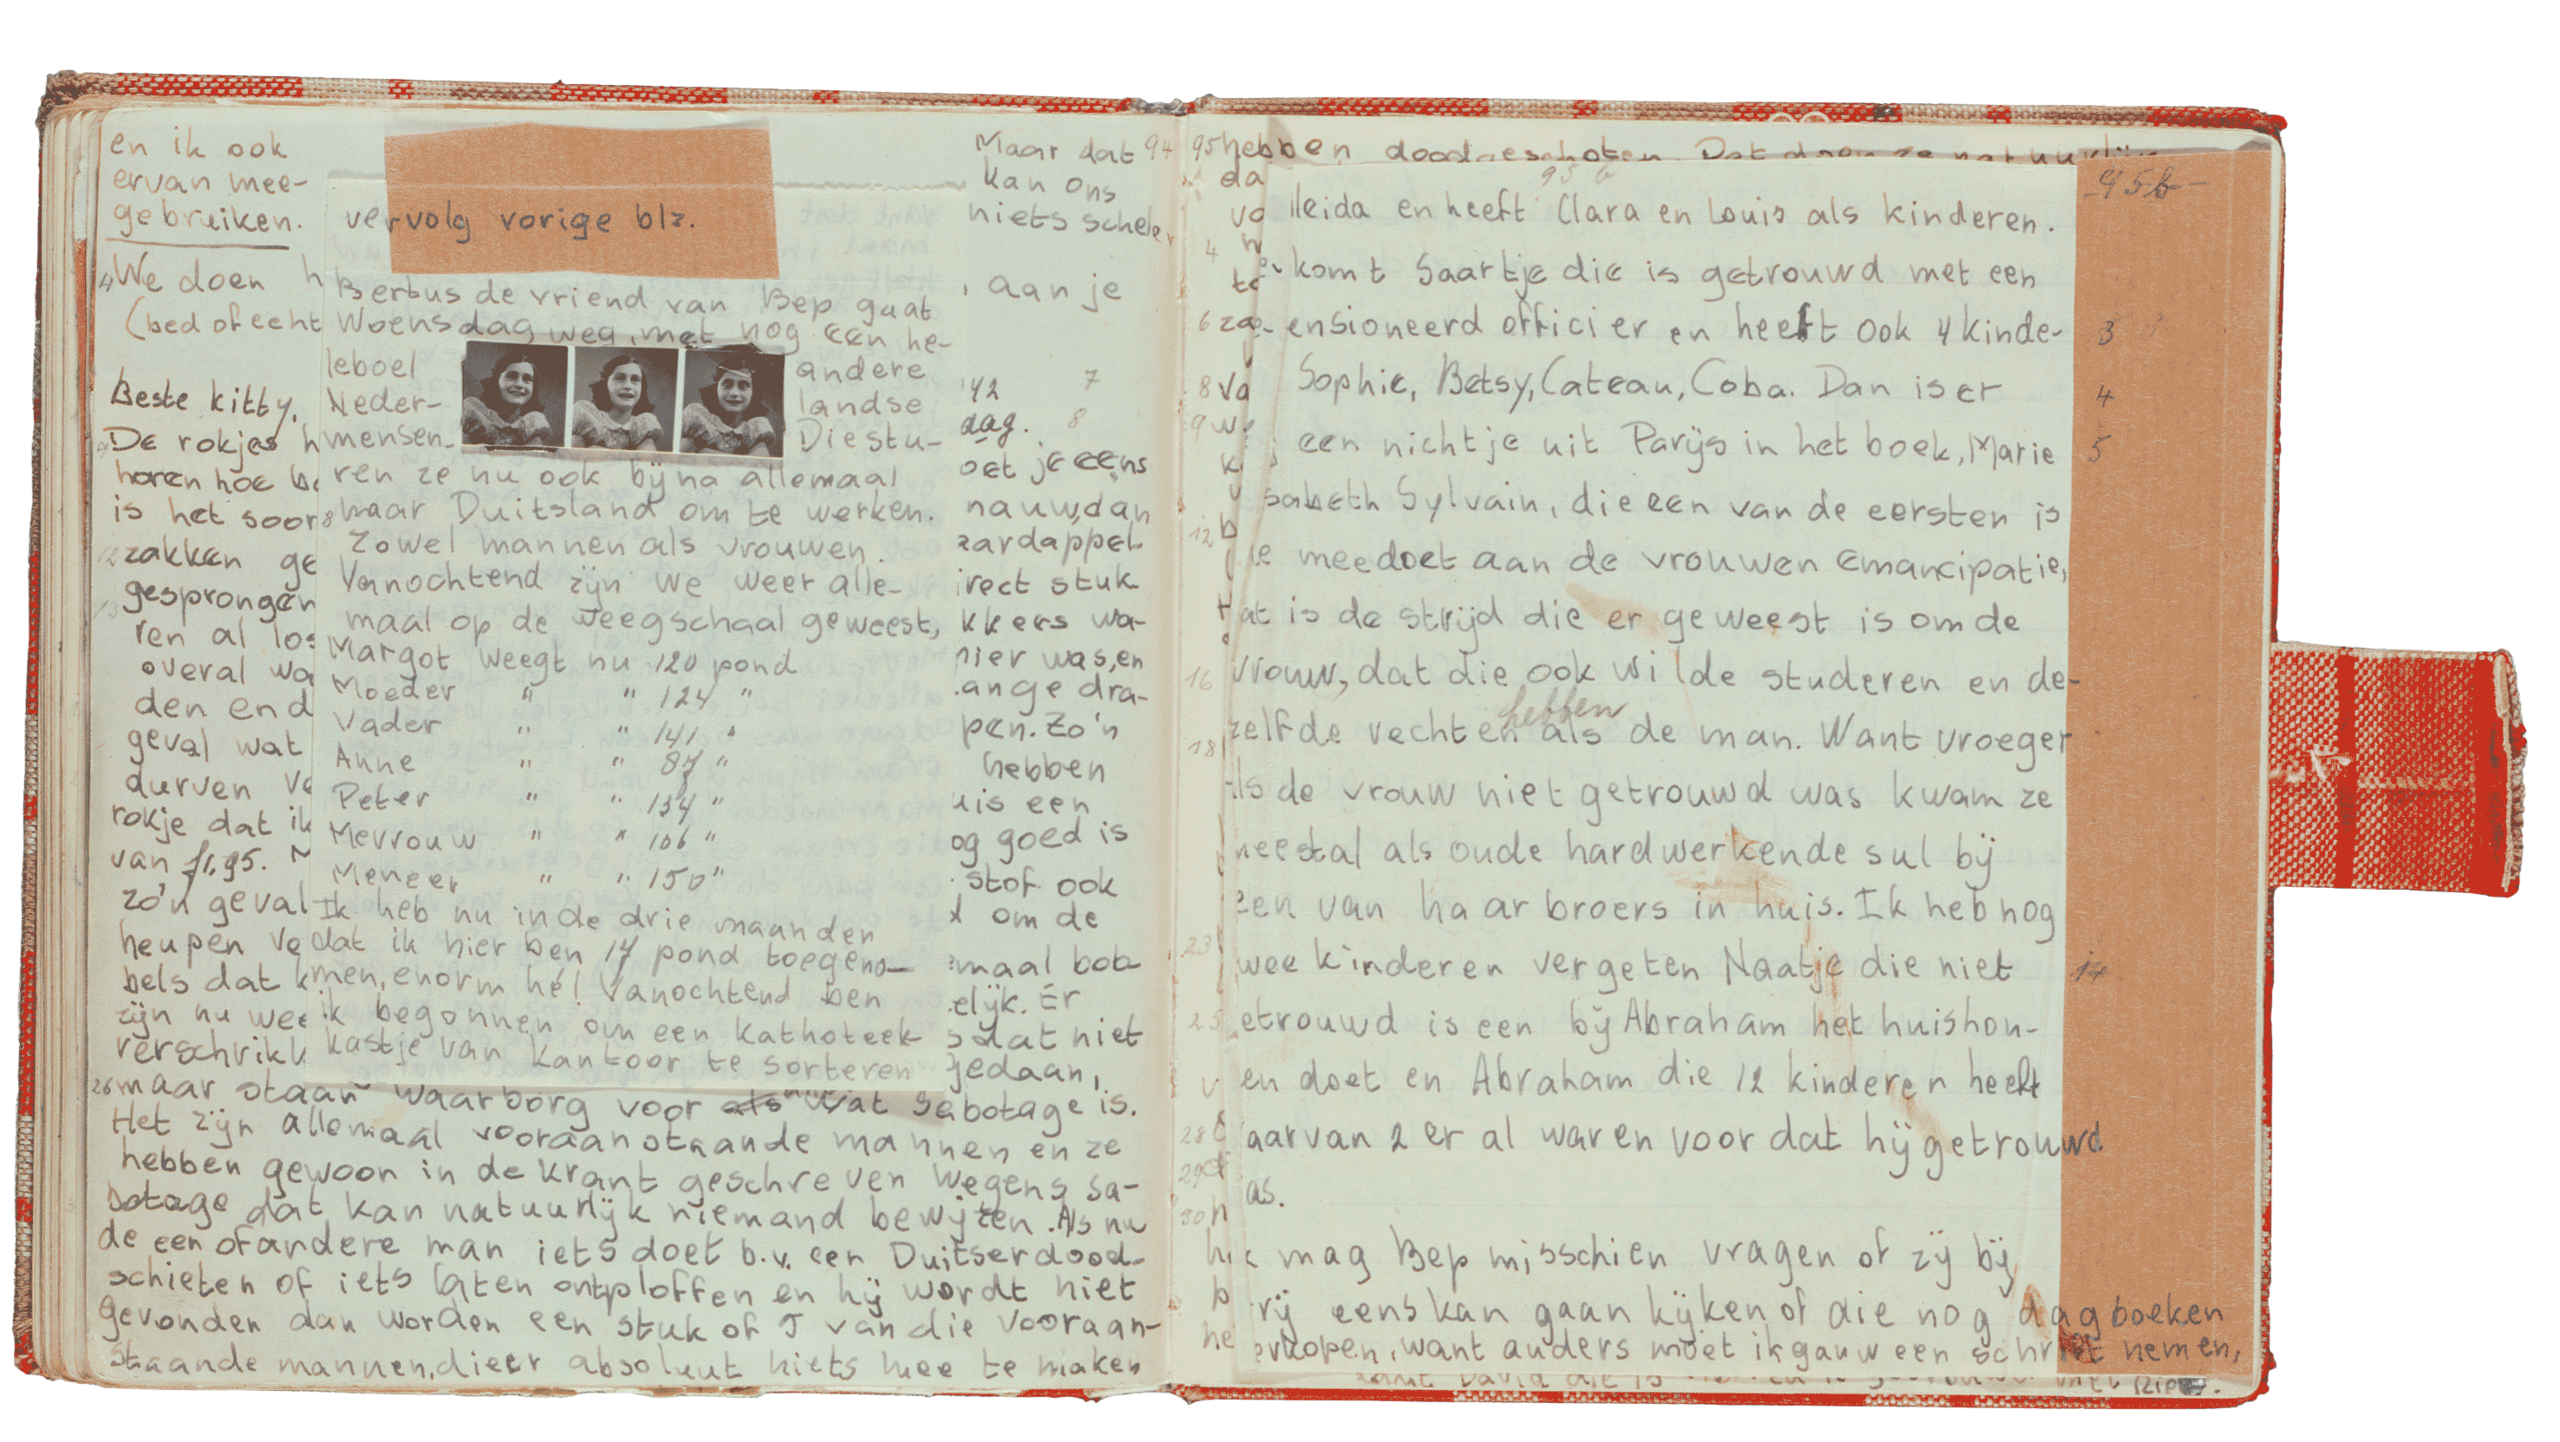 en ik ook
ervan mee-
gebruiken.
4 We doen h
(bed of echt
Beste kitty,
De rokjes h
horen hoe be
is het soor
12 zakken ge
gesprongen
ren al los
overal wa
den en d
geval wat
durven ve
rokje dat ik
van f1,95.
zo'n geval
heupen ve
bels dat k
zijn nu wee
verschrikk
vervolg vorige blz.
Bertus de vriend van Bep gaat
Woensdag weg, met nog een he-
leboel andere
Neder- landse
mensen. Die stu-
ren ze nu ook bijna allemaal
naar Duitsland om te werken.
Zowel mannen als vrouwen.
Vanochtend zijn we weer alle-
maal op de weegschaal geweest,
Margot weegt nu 120 pond
Moeder " " 124 "
Vader " " 141 "
Anne " " 87 "
Peter " " 134 "
Mevrouw " " 106 "
Meneer " " 150 "
Ik heb nu in de drie maanden
dat ik hier ben 17 pond toegeno-
men, enorm hè! Vanochtend ben
ik begonnen om een kathoteek
kastje van kantoor te sorteren
Maar dat 94
kan ons
niets schele
, aan je
'42 7
dag. 8
oet je eens
nauw, dan
aardappel
irect stuk
kkers wa-
hier was, en
ange dra-
pen. Zo'n
hebben
uis een
og goed is
stof ook
om de
emaal bob
elijk. Er
dat niet
gedaan,
26 maar staan waarborg voor als wat sabotage is.
Het zijn allemaal vooraanstaande mannen en ze
hebben gewoon in de krant geschreven wegens sa-
botage dat kan natuurlijk niemand bewijzen. Als nu
de een of andere man iets doet b.v. een Duitser dood-
schieten of iets laten ontploffen en hij wordt niet
gevonden dan worden een stuk of 5 van die vooraan-
staande mannen, die er absoluut niets mee te maken
95 hebben doodgeschoten. Dat doen ze natuurlijk
da
vo
4
6
8 va
9
12 b
16
18
23
25
28
29
30
95 b
95 b
lleida en heeft Clara en Louis als kinderen.
komt Saartje die is getrouwd met een
ensioneerd officier en heeft ook 4 kinde- 3
Sophie, Betsy, Cateau, Coba. Dan is er 4
een nichtje uit Parijs in het boek, Marie 5
sabeth Sylvain, die een van de eersten is
ie meedoet aan de vrouwen emancipatie,
at is de strijd die er geweest is om de
vrouw, dat die ook wilde studeren en de-
hebben
zelfde rechten als de man. Want vroeger
ls de vrouw niet getrouwd was kwam ze
neestal als oude hardwerkende sul bij
een van haar broers in huis. Ik heb nog
wee kinderen vergeten Naatje die niet 14
etrouwd is een bij Abraham het huishou-
en doet en Abraham die 12 kinderen heeft
aarvan 2 er al waren voor dat hij getrouwd
as.
k mag Bep misschien vragen of zij bij
rij eens kan gaan kijken of die nog dagboeken
erkopen, want anders moet ik gauw een schrift nemen,